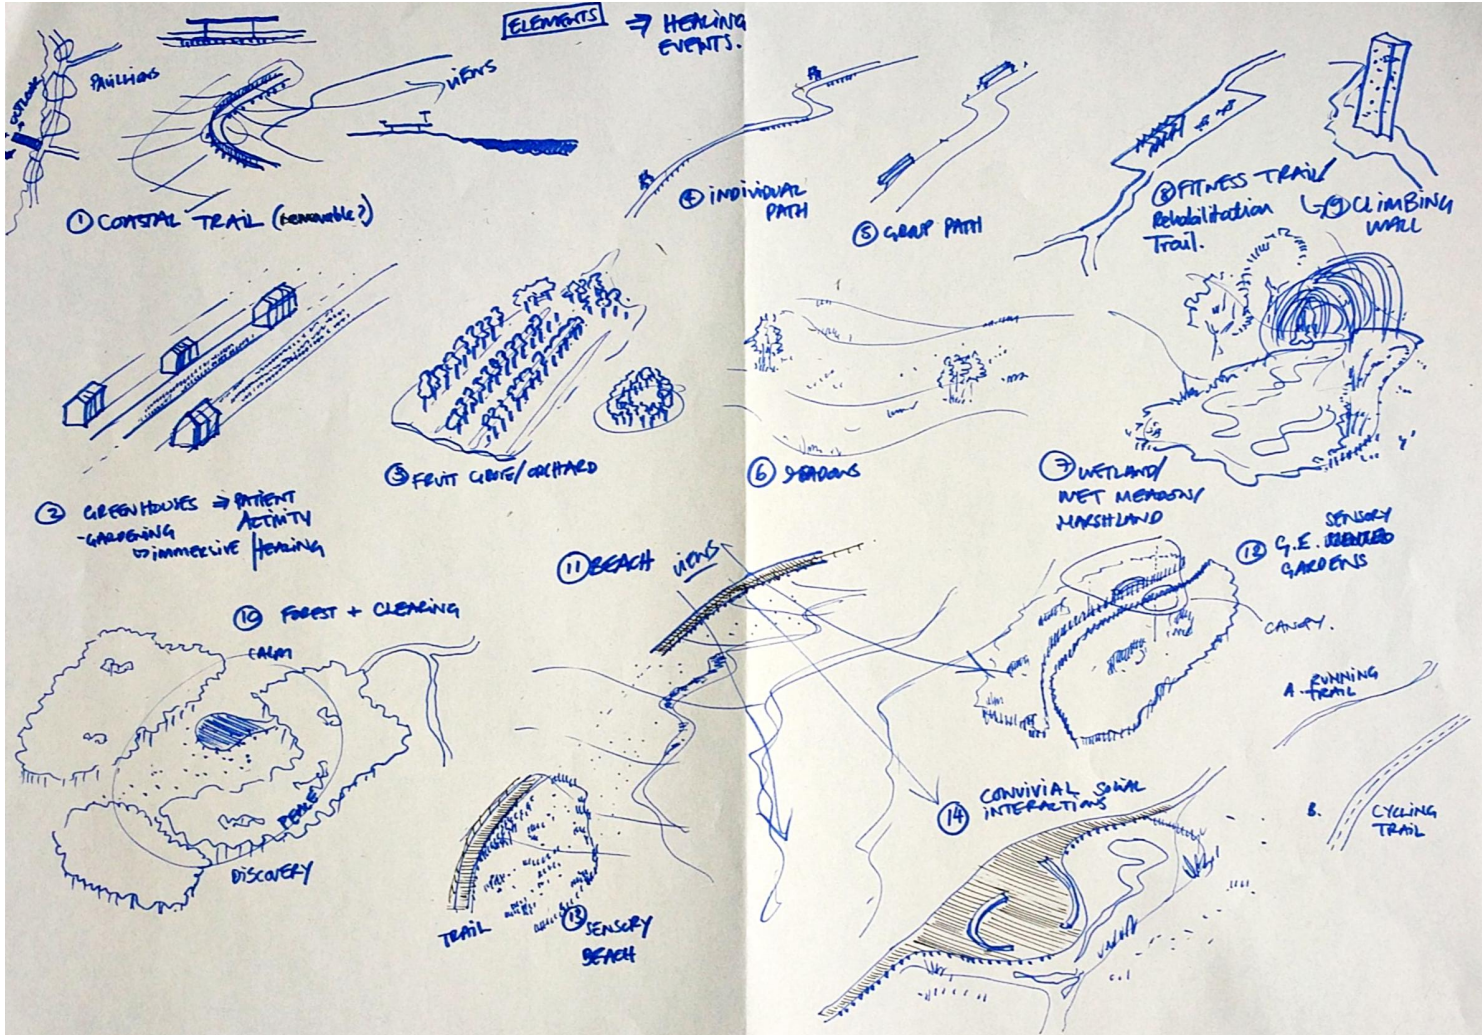 ELEMENTS ⇒ HEALING
EVENTS.
OUTLOOK
PAVILLIONS
VIEWS
① COASTAL TRAIL (removable?)
④ INDIVIDUAL
PATH
⑤ GROUP PATH
⑧ FITNESS TRAIL/
Rehabilitation
Trail.
↳ ⑨ CLIMBING
WALL
② GREENHOUSES ⇒ PATIENT
ACTIVITY
-GARDENING
↳ IMMERSIVE / HEALING
③ FRUIT GROVE/ORCHARD
⑥ MEADOWS
⑦ WETLAND/
WET MEADOW/
MARSHLAND
⑩ FOREST + CLEARING
CALM
PEACE
DISCOVERY
⑪ BEACH
VIEWS
⑫ G.E. SENSORY
GARDENS
CANOPY.
A. RUNNING
TRAIL
B. CYCLING
TRAIL
TRAIL
⑬ SENSORY
BEACH
⑭ CONVIVIAL SOCIAL
INTERACTIONS